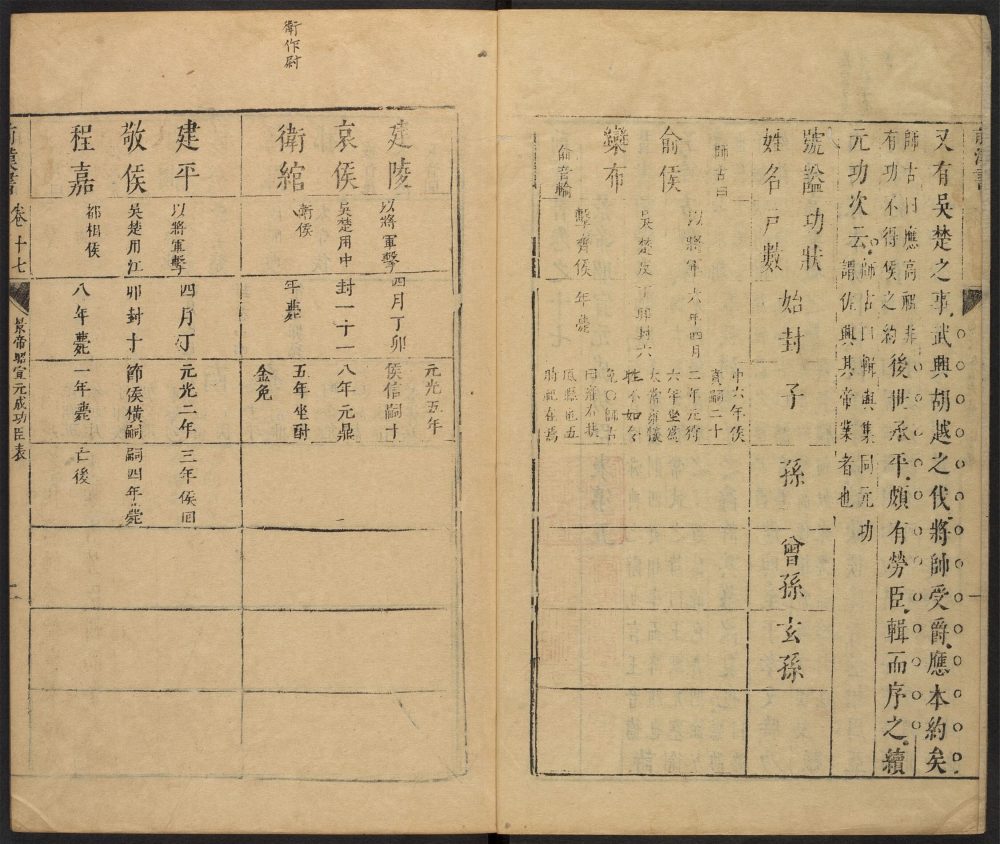 又有吳楚之事武興胡越之伐將帥受爵應本約矣
師古曰應高祖非
有功不得侯之約
後世承平頗有勞臣輯而序之續
元功次云
師古曰輯與集同元功
謂佐興其帝業者也
號謚
姓名
功狀
戶數
始封
子
孫
曾孫
玄孫
師古曰
俞侯
欒布
俞音輸
以將軍
吳楚反
擊齊侯
六年四月
丁卯封六
年薨
中六年侯
賁嗣二十
二年元狩
六年坐爲
太常雍犧
牲不如令
免
師古
衛作尉
建陵
哀侯
衛綰
以將軍擊
吳楚用中
尉侯
四月丁卯
封二十一
年薨
元光五年
侯信嗣十
八年元鼎
五年坐酎
金免
建平
敬侯
程嘉
以將軍擊
吳楚用江
都相侯
四月丁
卯封十
八年薨
元光二年
節侯橫嗣
一年薨
三年侯回
嗣四年薨
亡後
前漢書
卷十七
景帝昭宣元成功臣表
二